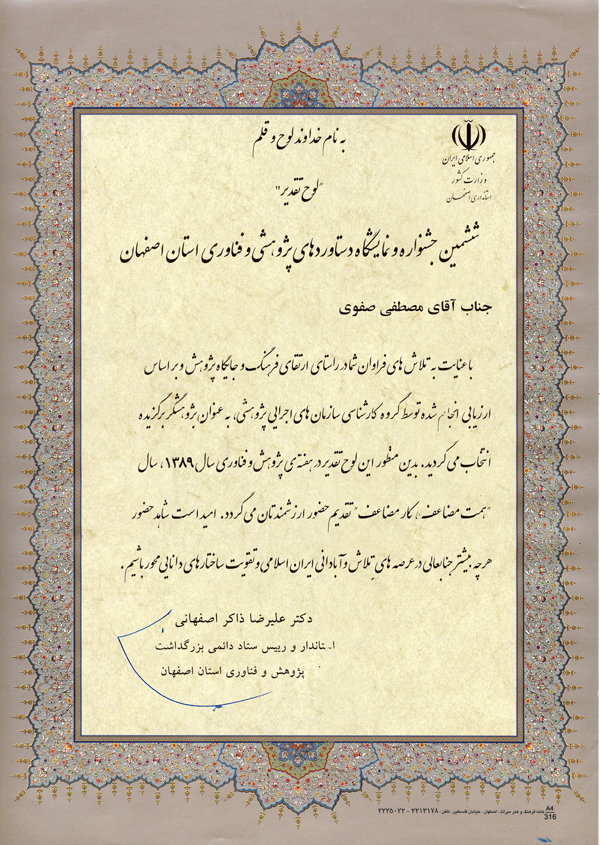 به نام خداوند لوح و قلم
جمهوری اسلامی ایران
وزارت کشور
استانداری اصفهان
"لوح تقدیر"
ششمین جشنواره و نمایشگاه دستاوردهای پژوهشی و فناوری استان اصفهان
جناب آقای مصطفی صفوی
با عنایت به تلاش های فراوان شما در راستای ارتقای فرهنگ و جایگاه پژوهش و بر اساس
ارزیابی انجام شده توسط گروه کارشناسی سازمان های اجرایی پژوهشی، به عنوان پژوهشگر برگزیده
انتخاب می گردید. بدین منظور این لوح تقدیر در هفته ی پژوهش و فناوری سال ۱۳۸۹، سال
"همت مضاعف، کار مضاعف" تقدیم حضور ارزشمندتان می گردد. امید است شاهد حضور
هرچه بیشتر جنابعالی در عرصه های تلاش و آبادانی ایران اسلامی و تقویت ساختارهای دانایی محور باشیم.
دکتر علیرضا ذاکر اصفهانی
استاندار و رییس ستاد دائمی بزرگداشت
پژوهش و فناوری استان اصفهان
خانه فرهنگ و هنر میراث - اصفهان - خیابان فلسطین - تلفن: ۲۲۱۳۱۷۸ - ۲۲۲۵۰۲۲
A4
316